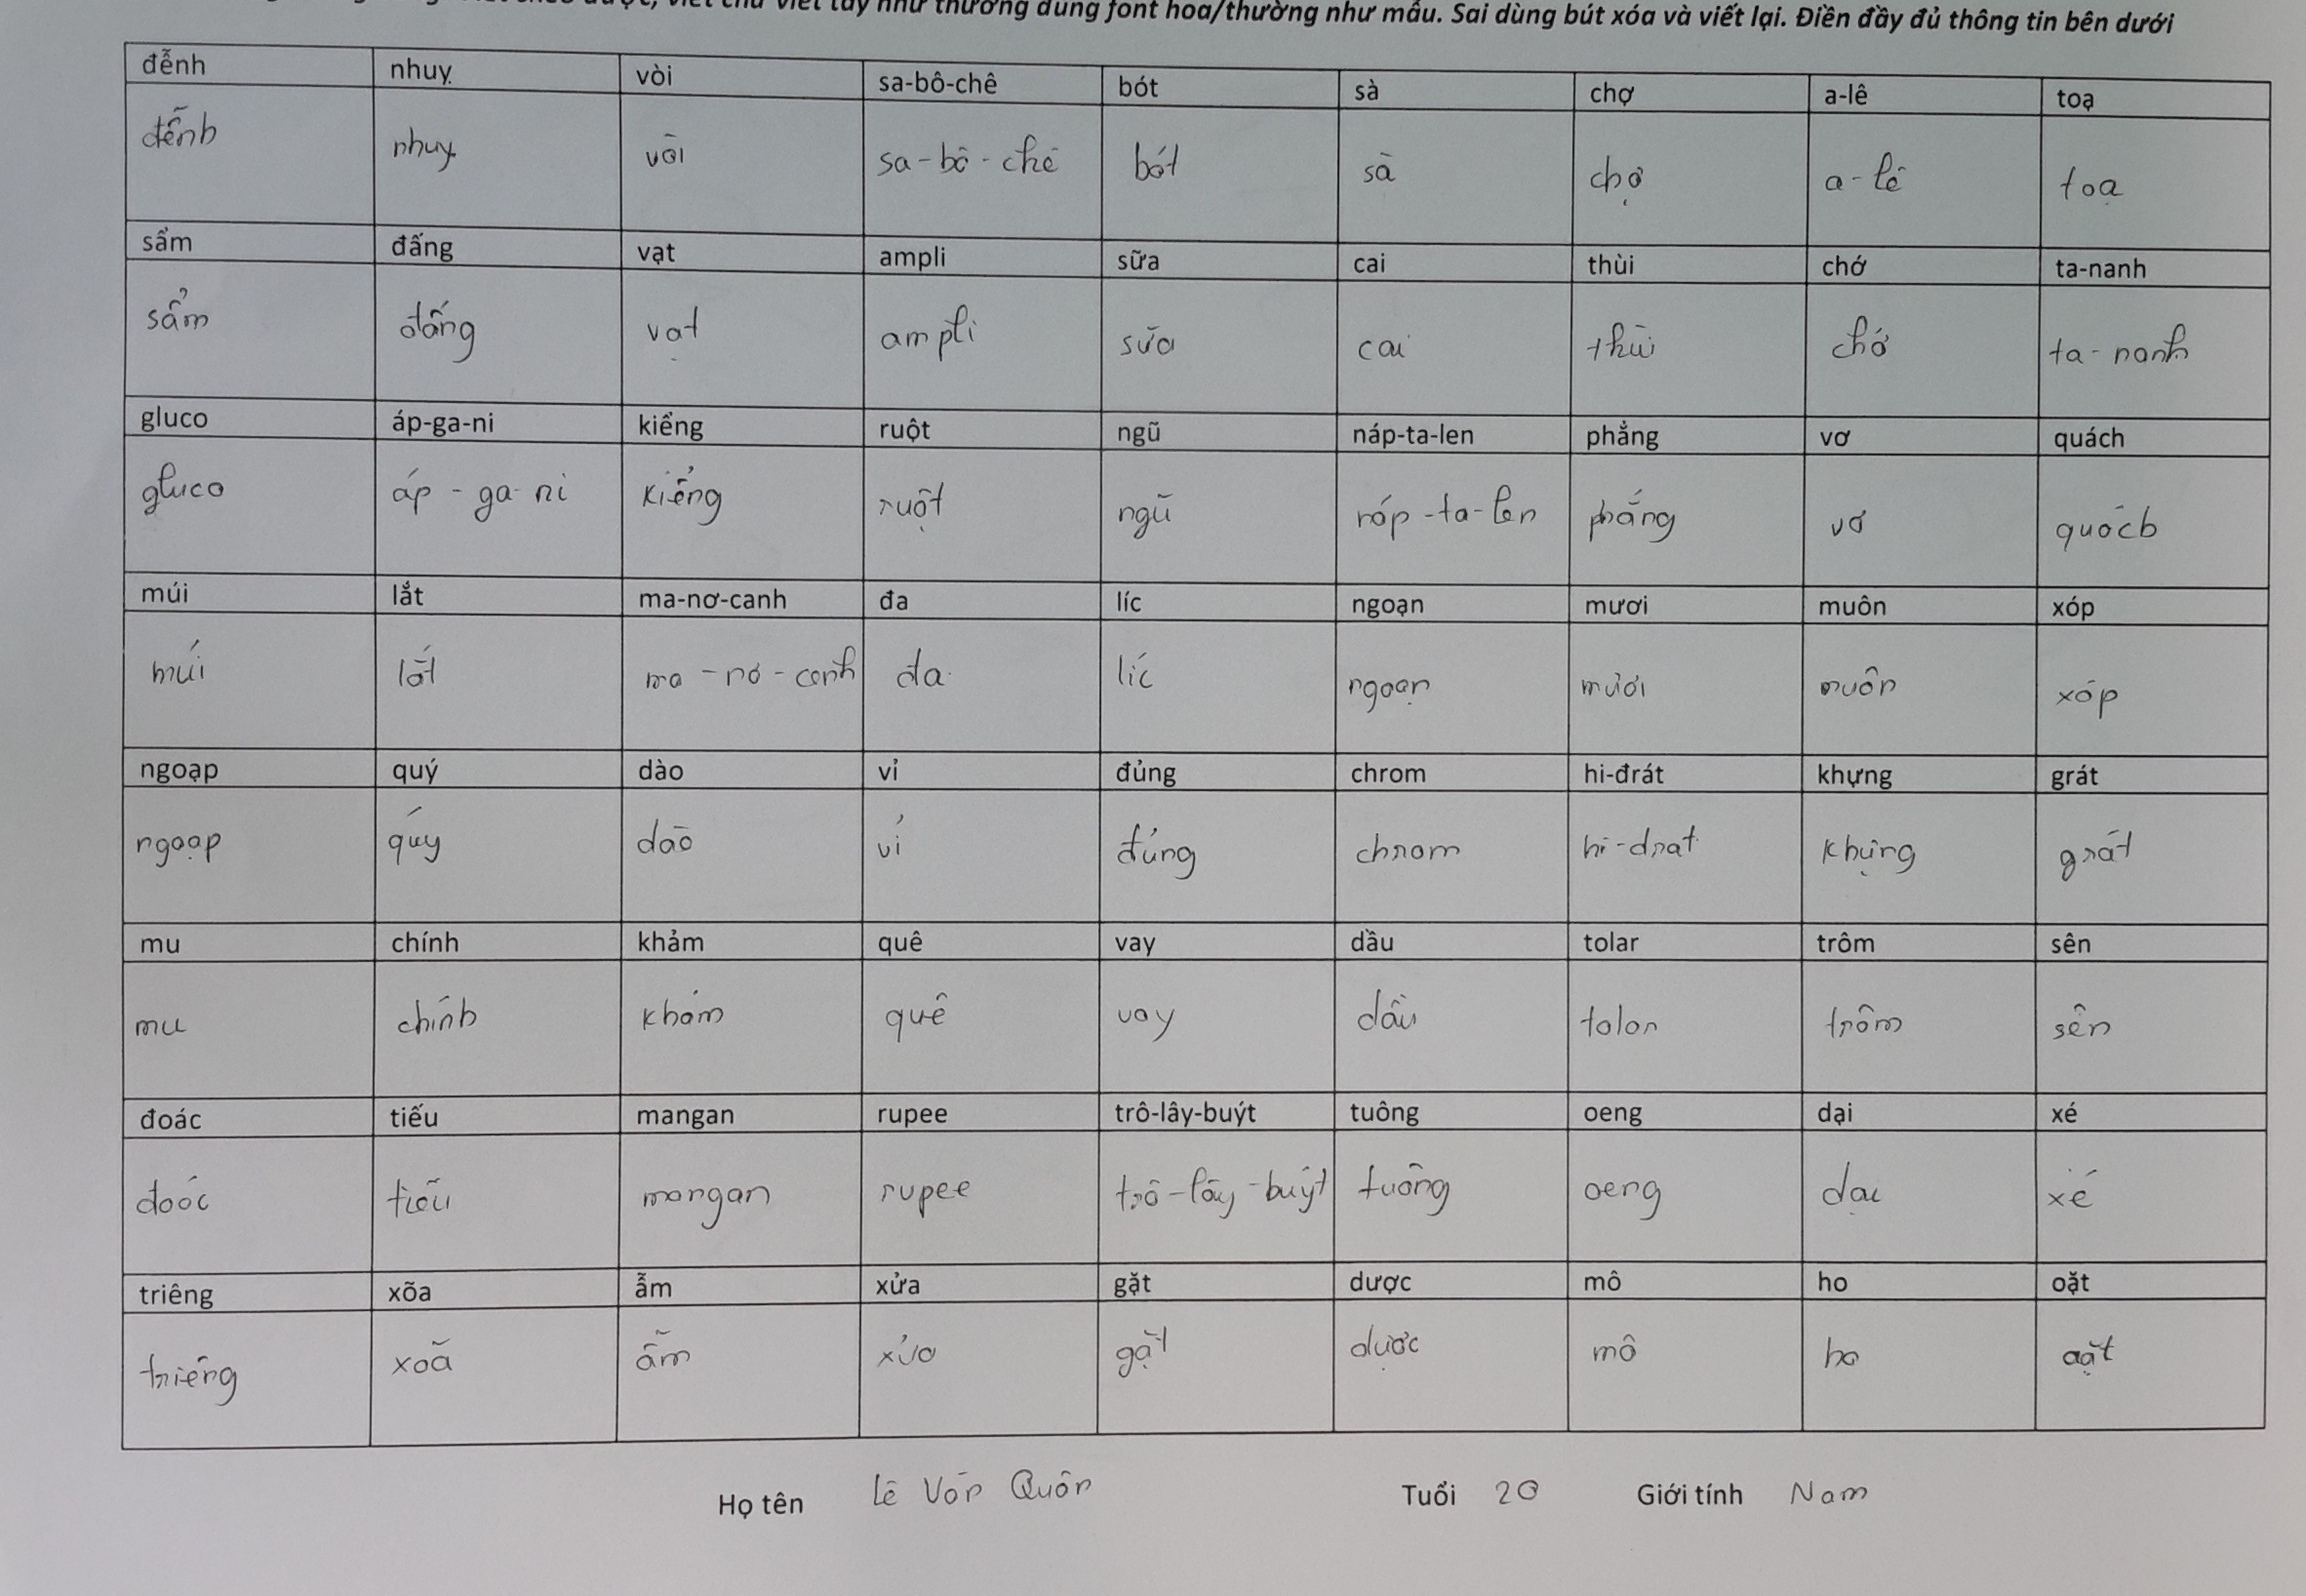 viết chữ viết tay như thường dùng font hoa/thường như mẫu. Sai dùng bút xóa và viết lại. Điền đầy đủ thông tin bên dưới
đễnh nhuỵ vòi sa-bô-chê bót sà chợ a-lê toạ
đễnh nhuỵ vòi sa-bô-chê bót sà chợ a-lê toạ
sẩm đấng vạt ampli sữa cai thùi chớ ta-nanh
sẩm đấng vạt ampli sữa cai thùi chớ ta-nanh
gluco áp-ga-ni kiểng ruột ngũ náp-ta-len phẳng vơ quách
gluco áp-ga-ni kiểng ruột ngũ náp-ta-len phẳng vơ quách
múi lắt ma-nơ-canh đa líc ngoạn mươi muôn xóp
múi lắt ma-nơ-canh đa líc ngoạn mươi muôn xóp
ngoạp quý dào vỉ đủng chrom hi-đrát khựng grát
ngoạp quý dào vỉ đủng chrom hi-drat khựng grát
mu chính khảm quê vay dầu tolar trôm sên
mu chính khảm quê vay dầu tolar trôm sên
đoác tiếu mangan rupee trô-lây-buýt tuông oeng dại xé
đoác tiếu mangan rupee trô-lây-buýt tuông oeng dại xé
triêng xõa ẫm xửa gặt dược mô ho oặt
triêng xoã ẫm xửa gặt dược mô ho oặt
Họ tên Lê Văn Quân Tuổi 20 Giới tính Nam